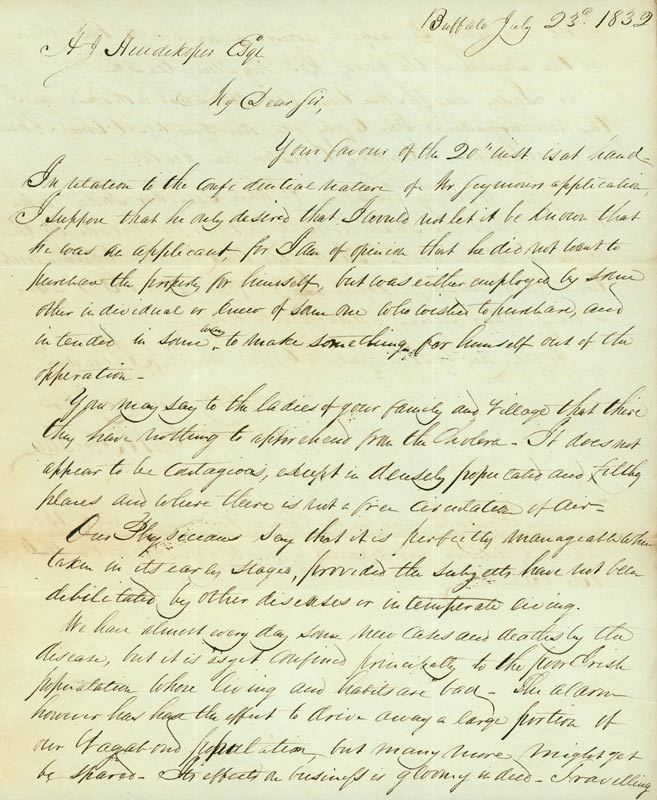 Buffalo July 23d 1832
H J Huidekoper Esqr
My Dear Sir,
Your favour of the 20th inst is at hand-
In relation to the confidential nature of Mr Seymours application,
I suppose that he only desired that I would not let it be known that
he was an applicant, for I am of opinion that he did not want to
purchase the property for himself, but was either employed by some
other individual or knew of some one who wished to purchase, and
intended in some way to make something for himself out of the
opperation-
You may say to the ladies of your family and Village that there
they have nothing to apprehend from the Cholera- It does not
appear to be contagious, except in densely populated and filthy
places and where there is not a free circulation of air-
Our Physicians say that it is perfectly manageable when
taken in its early stages, provided the subjects have not been
debilitated by other diseases or intemperate living.
We have almost every day some new cases and deaths by the
disease, but it is as yet confined principally to the poor Irish
population whose living and habits are bad- The alarm
however has had the effect to drive away a large portion of
our Vagabond population, but many more might yet
be spared- Its effects on business is gloomy indeed- Travelling